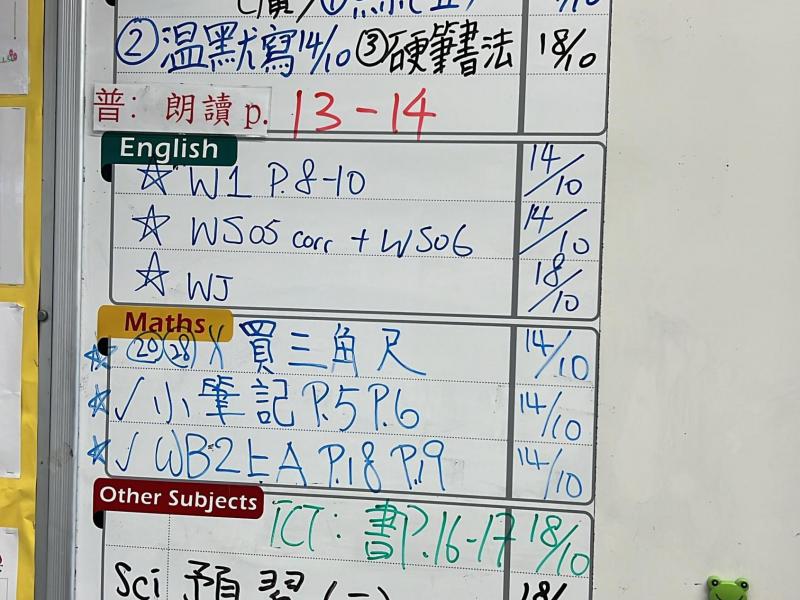 ② 溫默寫 14/10 ③ 硬筆書法 18/10
普: 朗讀 p. 13-14
English
☆ W1 P.8-10 14/10
☆ WS05 corr + WS06 14/10
☆ WJ 18/10
Maths
☆ ⑳ ㉘ X 買三角尺 14/10
☆ ✓ 小筆記 P.5 P.6 14/10
☆ ✓ WB2上A P.18 P.19 14/10
Other Subjects
ICT: 書P.16-17 18/10
Sci 預習 18/